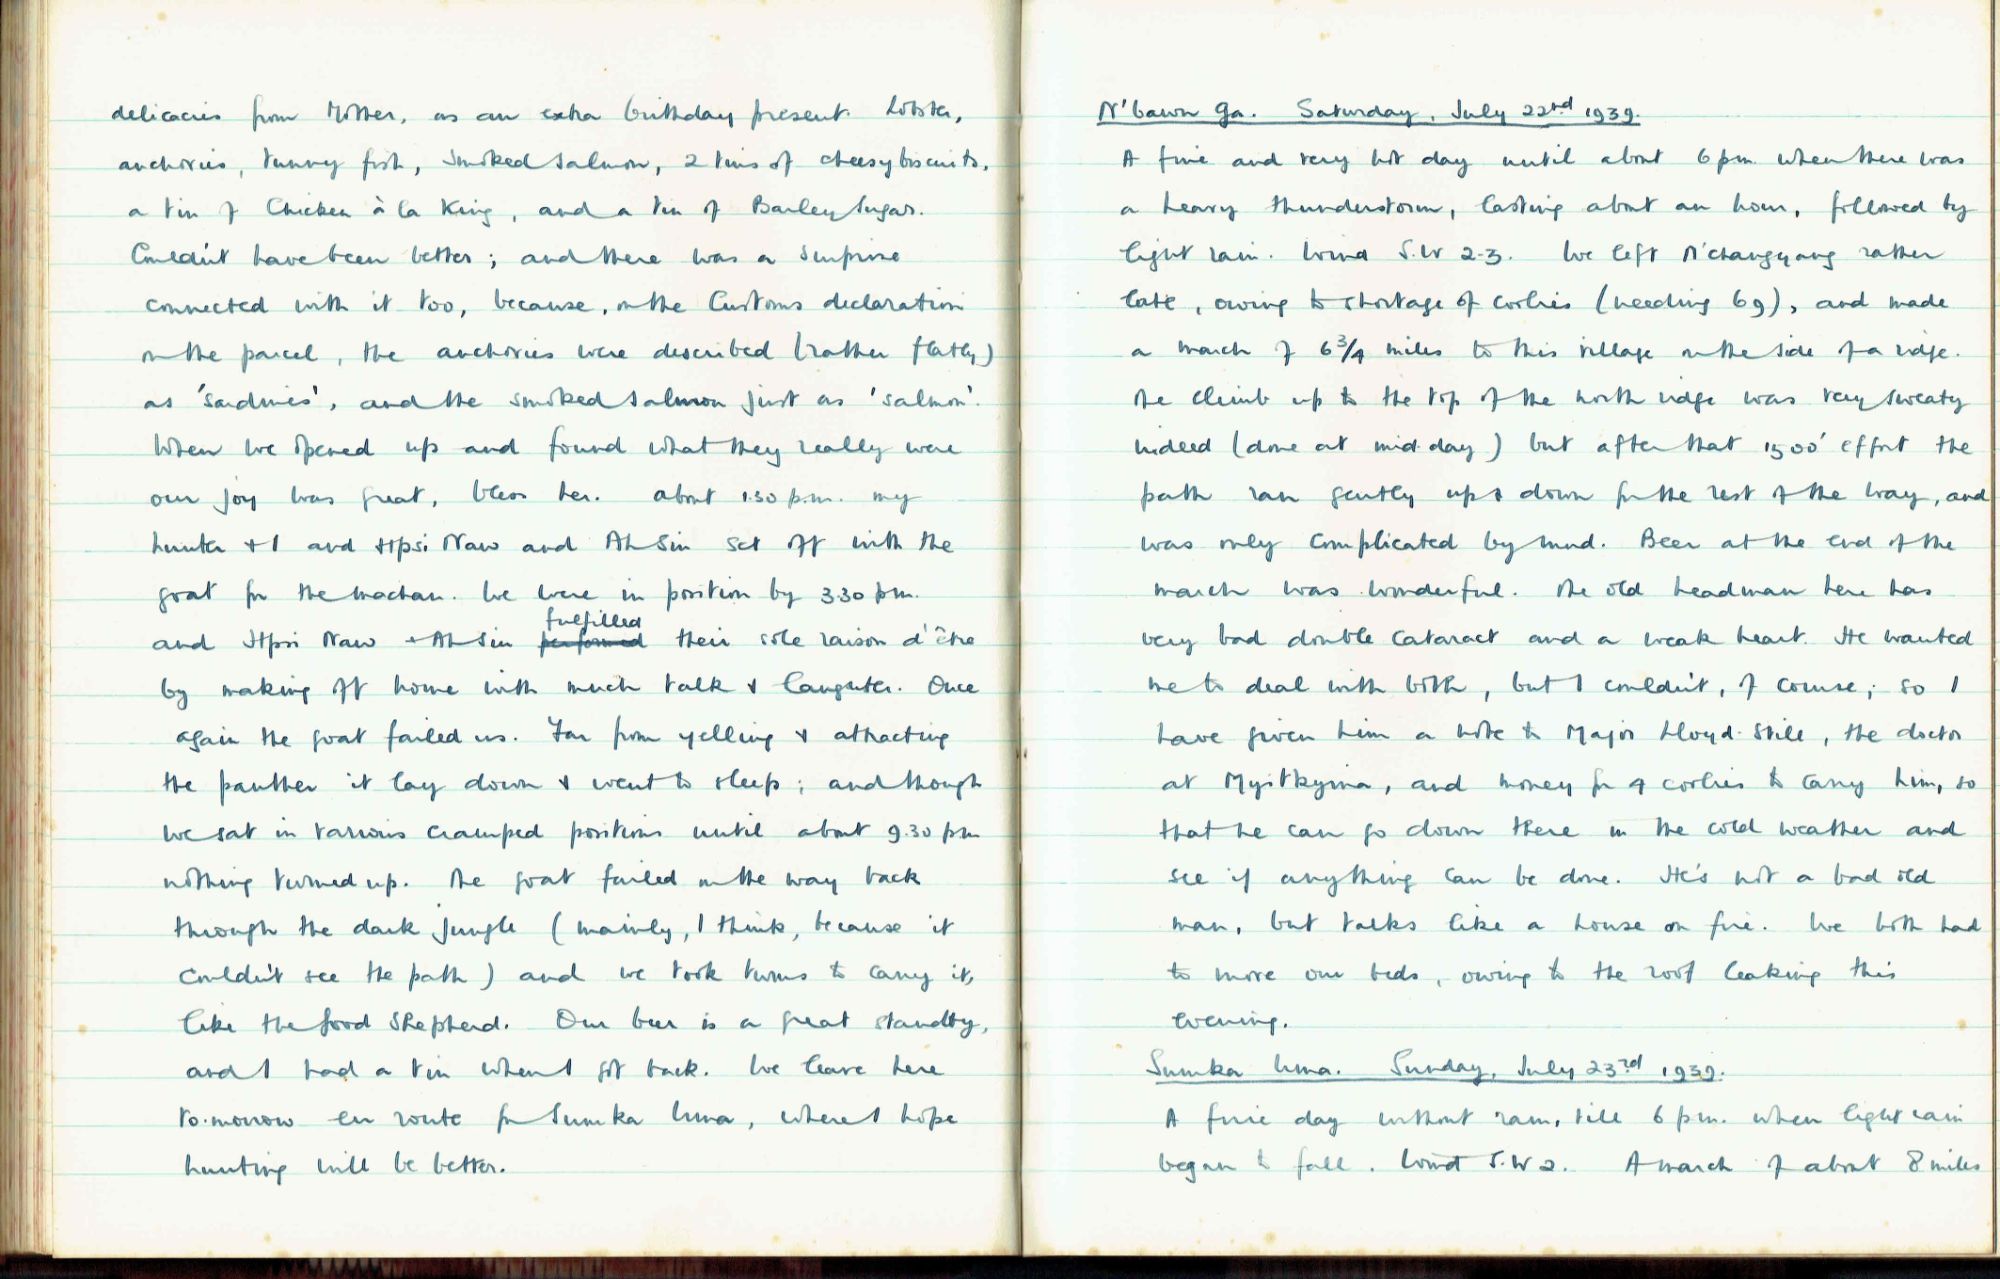 delicacies from Mother, as an extra birthday present. Lobster,
anchovies, tunny fish, smoked salmon, 2 tins of cheesy biscuits,
a tin of Chicken à la King, and a tin of Barley Sugar.
Couldn't have been better; and there was a surprise
connected with it too, because, on the Customs declaration
on the parcel, the anchovies were described (rather flatly)
as 'sardines', and the smoked salmon just as 'salmon'.
When we opened up and found what they really were
our joy was great, bless her. About 1.30 p.m. my
hunter & I and Htpsi Naw and Ah Sin set off with the
goat for the machan. We were in position by 3.30 p.m.
and Htpsi Naw & Ah Sin performed fulfilled their sole raison d'être
by making off home with much talk & laughter. Once
again the goat failed us. Far from yelling & attracting
the panther it lay down & went to sleep; and though
we sat in various cramped positions until about 9.30 pm
nothing turned up. The goat failed on the way back
through the dark jungle (mainly, I think, because it
couldn't see the path) and we took turns to carry it,
like the Good Shepherd. Our beer is a great standby,
and I had a tin when I got back. We leave here
to-morrow en route for Sumka Uma, where I hope
hunting will be better.
N'bawn Ga. Saturday, July 22nd 1939.
A fine and very hot day until about 6 pm when there was
a heavy thunderstorm, lasting about an hour, followed by
light rain. Wind S.W 2-3. We left N'changyang rather
late, owing to shortage of coolies (needing 69), and made
a march of 6 3/4 miles to this village on the side of a ridge.
The climb up to the top of the north ridge was very sweaty
indeed (done at mid-day) but after that 1500' effort the
path ran gently up & down for the rest of the way, and
was only complicated by mud. Beer at the end of the
march was wonderful. The old headman here has
very bad double cataract and a weak heart. He wanted
me to deal with both, but I couldn't, of course; so I
have given him a note to Major Lloyd-Still, the doctor
at Myitkyina, and money for 4 coolies to carry him, so
that he can go down there in the cold weather and
see if anything can be done. He's not a bad old
man, but talks like a house on fire. We both had
to move our beds, owing to the roof leaking this
evening.
Sumka Uma. Sunday, July 23rd 1939.
A fine day without rain, till 6 pm. when light rain
began to fall. Wind S.W 2. A march of about 8 miles